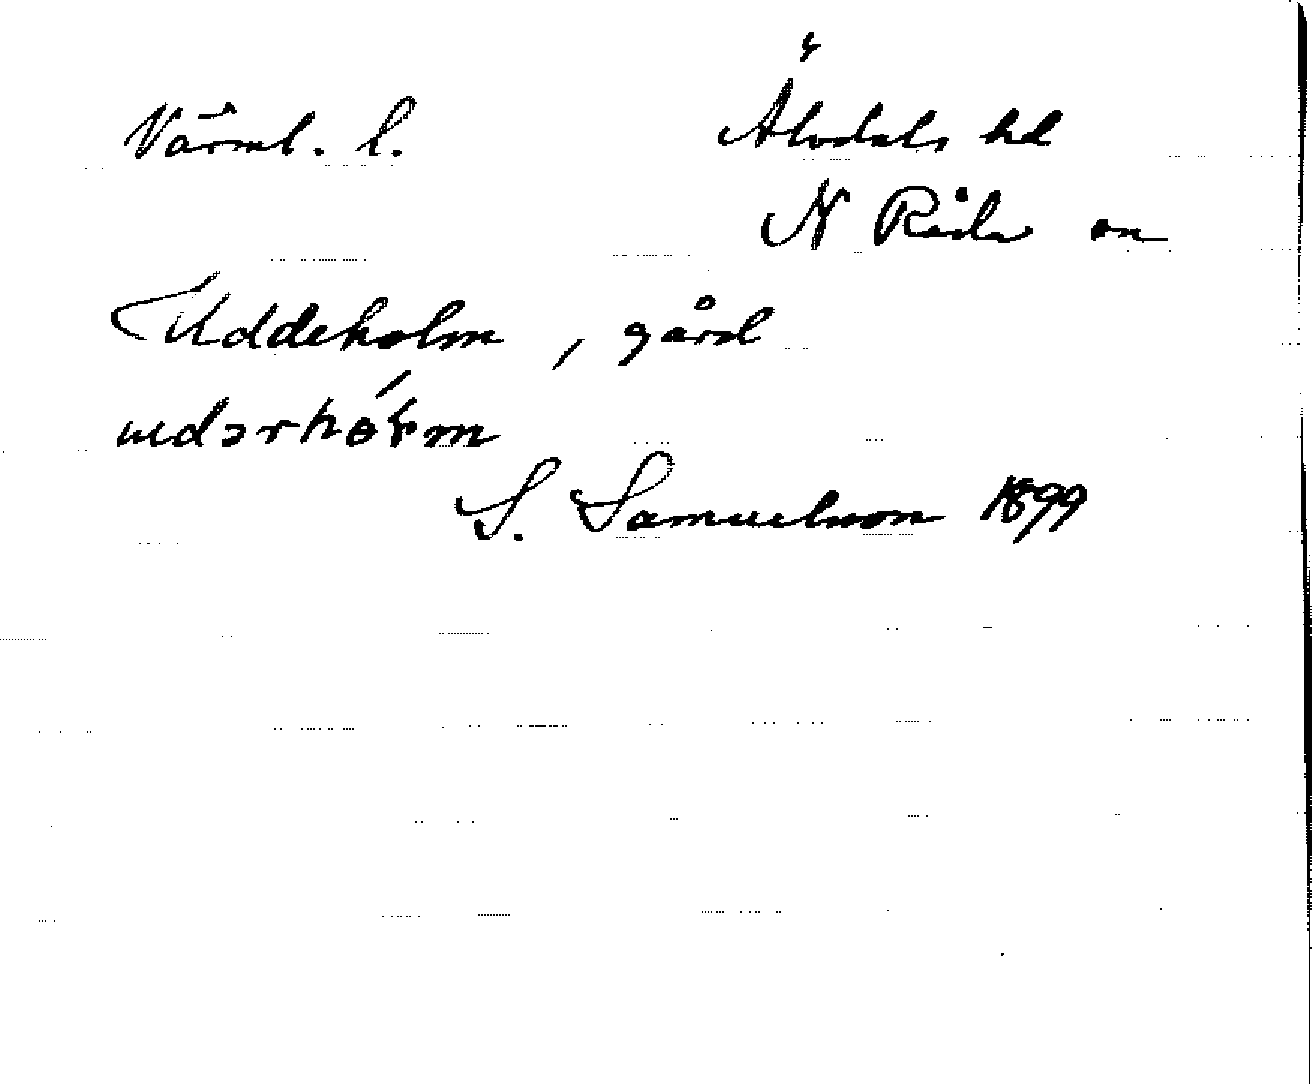 Värml. l. Älvdals hd
N Råda sn
Uddeholm, gård
S. Samuelsson 1899